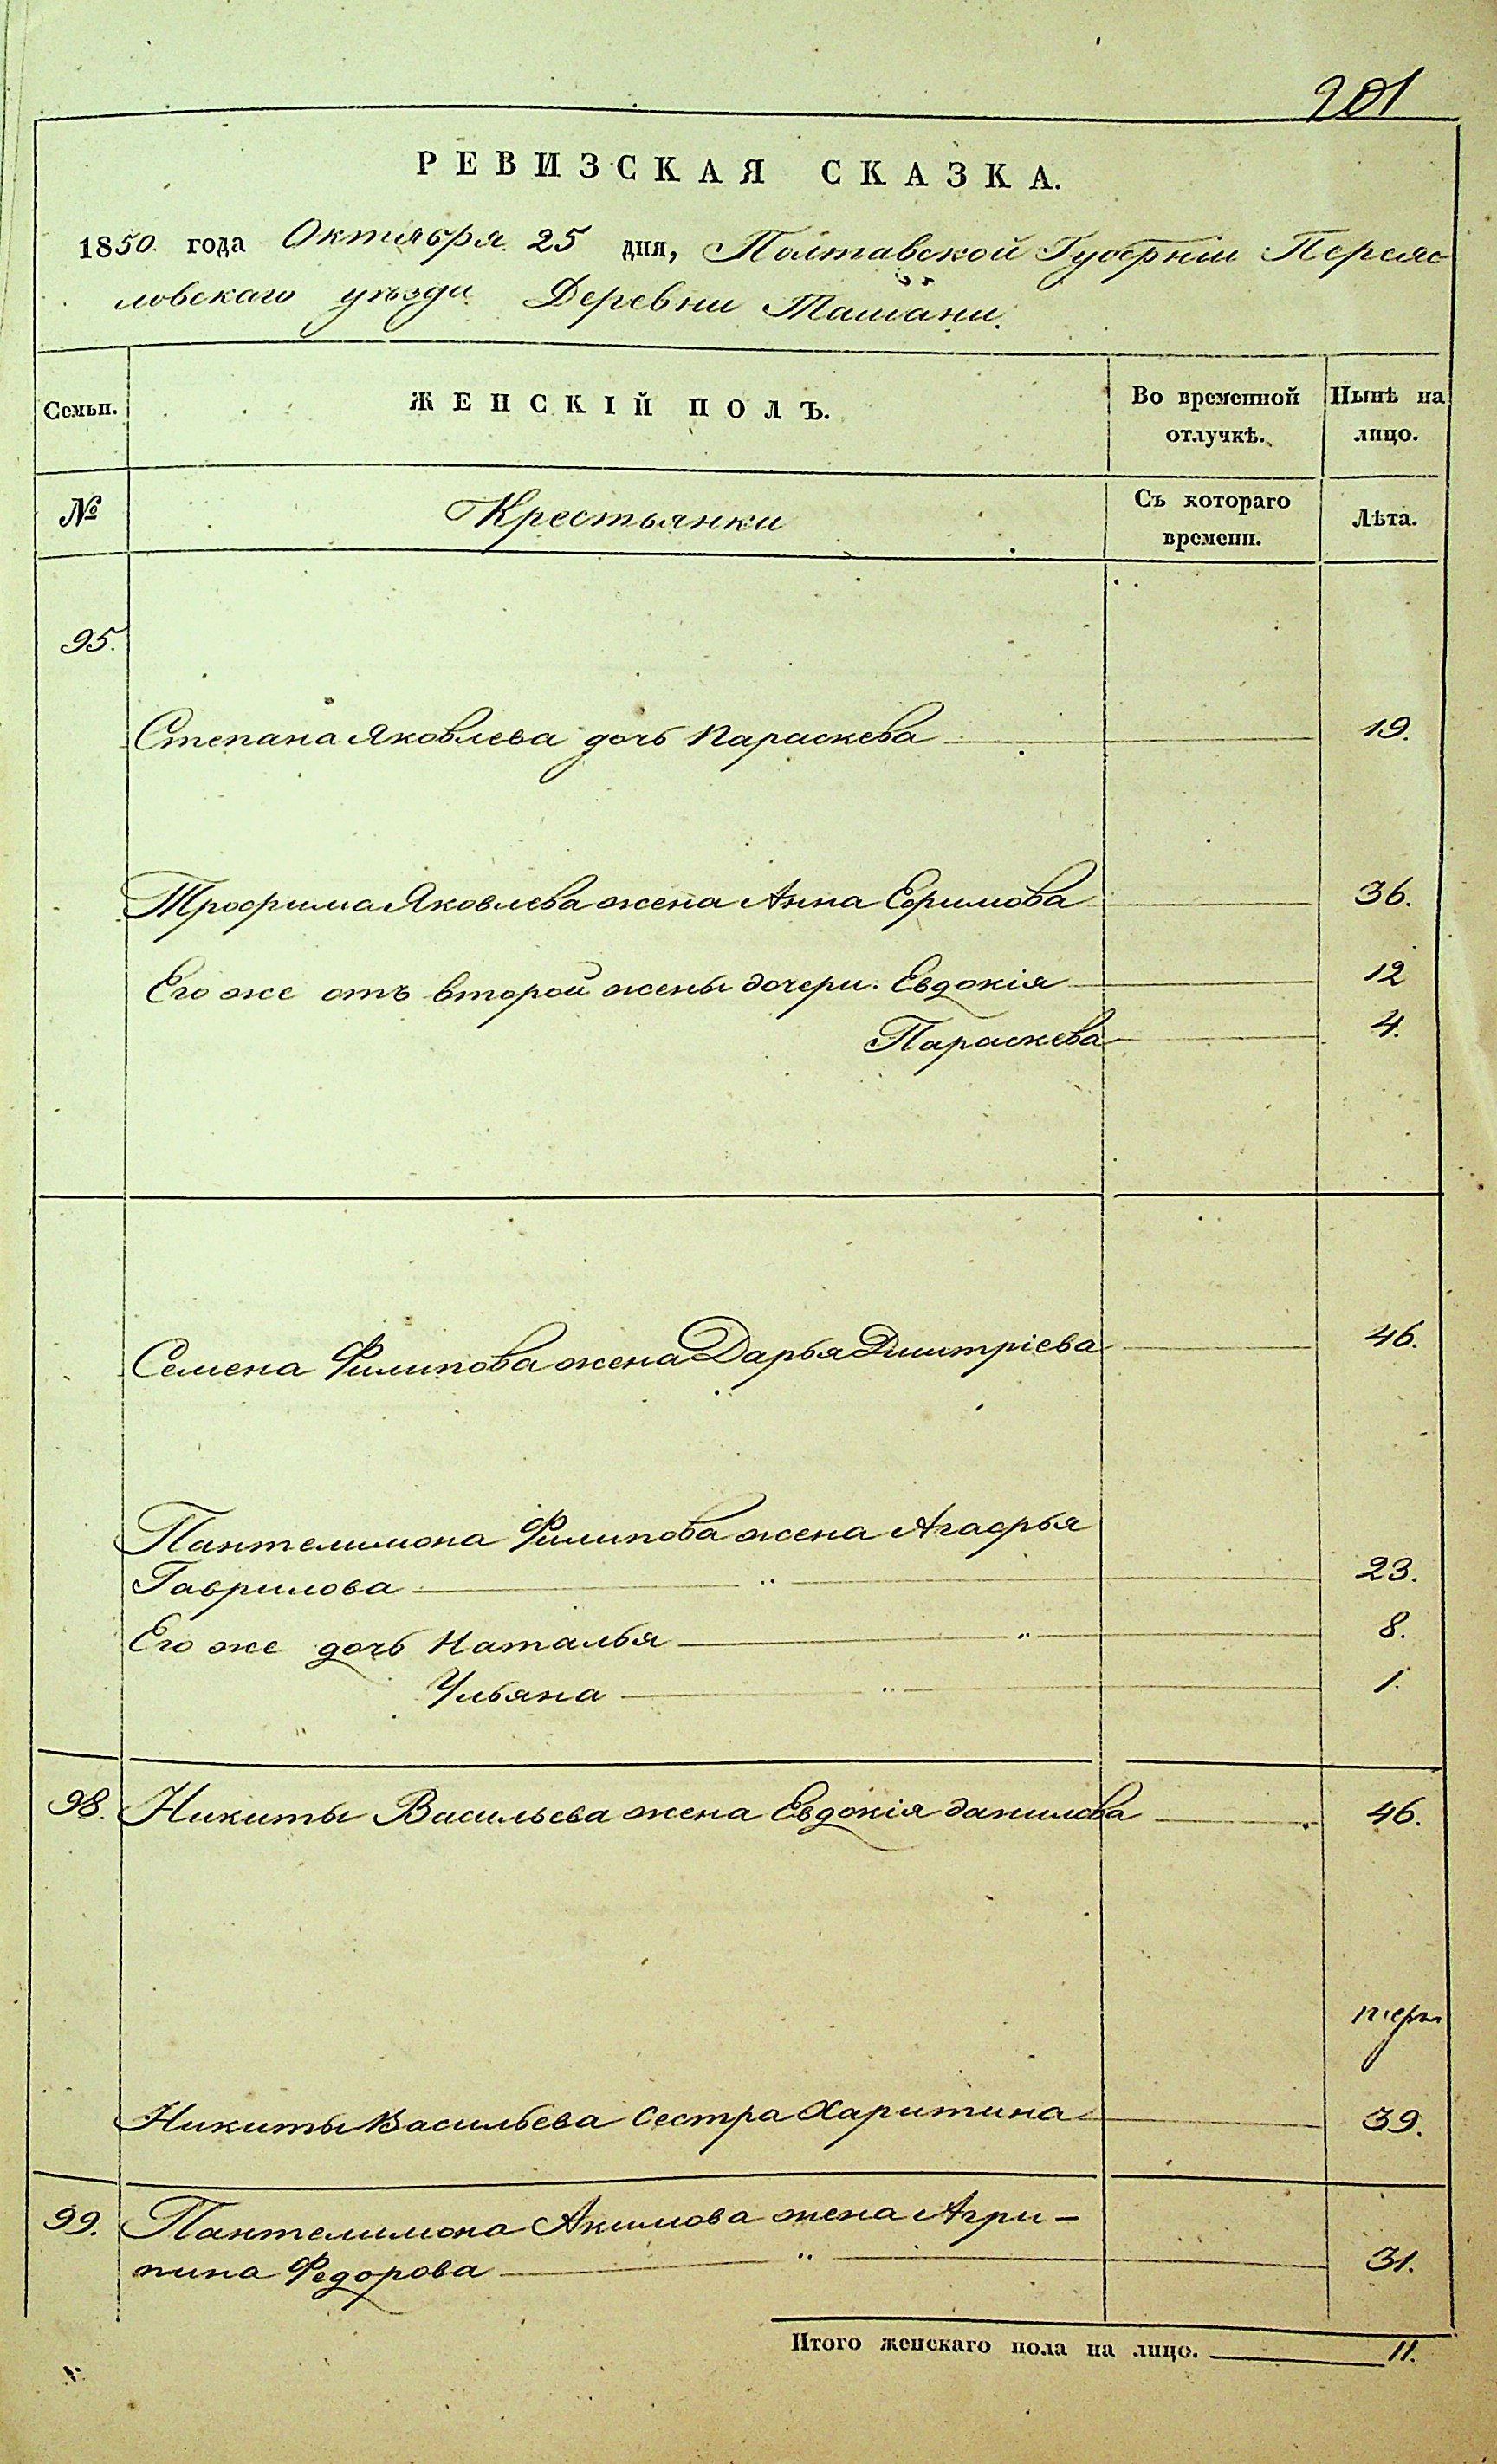 201
РЕВИЗСКАЯ СКАЗКА.
1850 года Октября 25 дня, Полтавской Губерніи Переяс
ловскаго уѣзда Деревни Ташани.
Семьи. ЖЕНСКІЙ ПОЛЪ. Во временной отлучкѣ. Нынѣ на лицо.
№ Крестьянки Съ котораго времени. Лѣта.
95.
Степана Яковлева дочь Параскева 19.
Трофима Яковлева жена Анна Ефимова 36.
Его же отъ второй жены дочери: Евдокія 12
Параскева 4.
Семена Филипова жена Дарья Дмитріева 46.
Пантелимона Филипова жена Агафья
Гаврилова 23.
Его же дочь Наталья 8.
Ульяна 1.
98. Никиты Васильева жена Евдокія данилова 46.
Никиты Васильева сестра Харитина 39.
99. Пантелимона Акимова жена Агри-
пина Федорова 31.
Итого женскаго пола на лицо. 11.